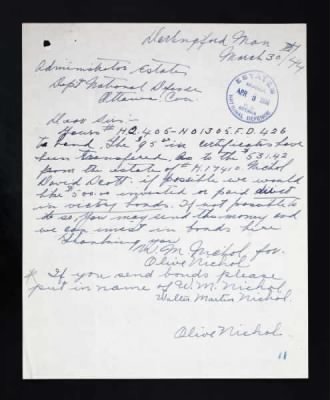 Darlingford Man
March 30/44
Administrator Estates
Dept National Defense
Ottawa Can
ESTATES
APR 3 1944
NATIONAL DEFENCE
Dear Sir:-
Yours # HQ 405-N01305 F.D. 426
to hand. The $95.00 in certificates have
been transfered. As to the 531.42
from the estate of H.17410 Nichol
David Scott. If possible we would
like $500.00 invested or paid direct
in victory bonds. If not possible to
do so, you may send the money and
we can invest in bonds here
Thanking you
W. M. Nichol for.
Olive Nichol
* If you send bonds please
put in name of W. M. Nichol
Walter Martin Nichol.
Olive Nichol
11